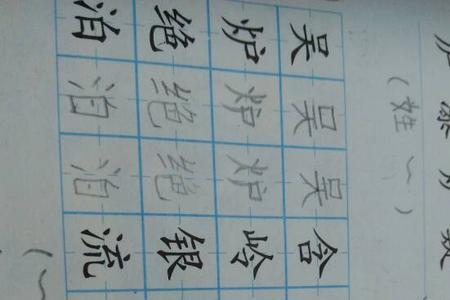 (姓~)
吴吴吴含
炉炉炉岭
绝绝绝银
泊泊泊流
(~